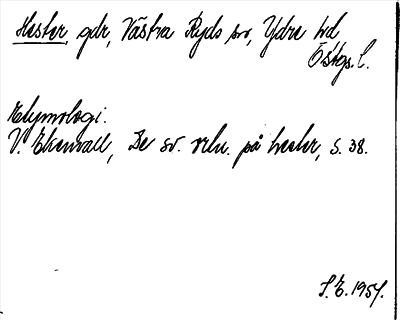 Hester, gdr, Västra Ryds sn, Ydre hd
Östgs. l.
Etymologi.
V. Ekenvall, De sv. ortn. på hester, s. 38.
S.E. 1957.